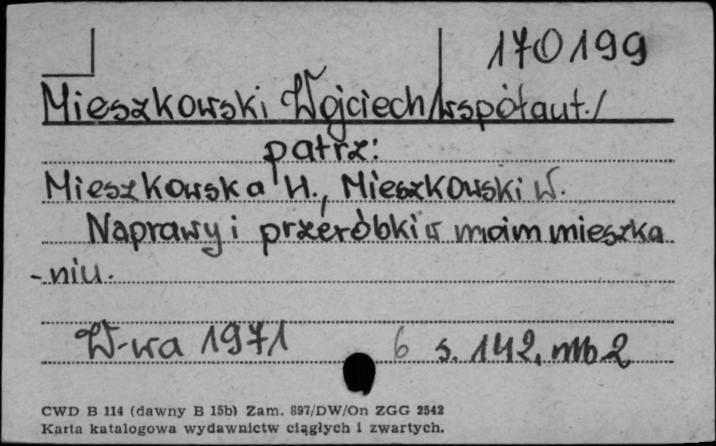 170199
Mieszkowski Wojciech /współaut./
patrz:
Mieszkowska H., Mieszkowski W.
Naprawy i przeróbki w moim mieszka
-niu.
W-wa 1971 6 s. 142, nlb 2
CWD B 114 (dawny B 15b) Zam. 897/DW/On ZGG 2542
Karta katalogowa wydawnictw ciągłych i zwartych.